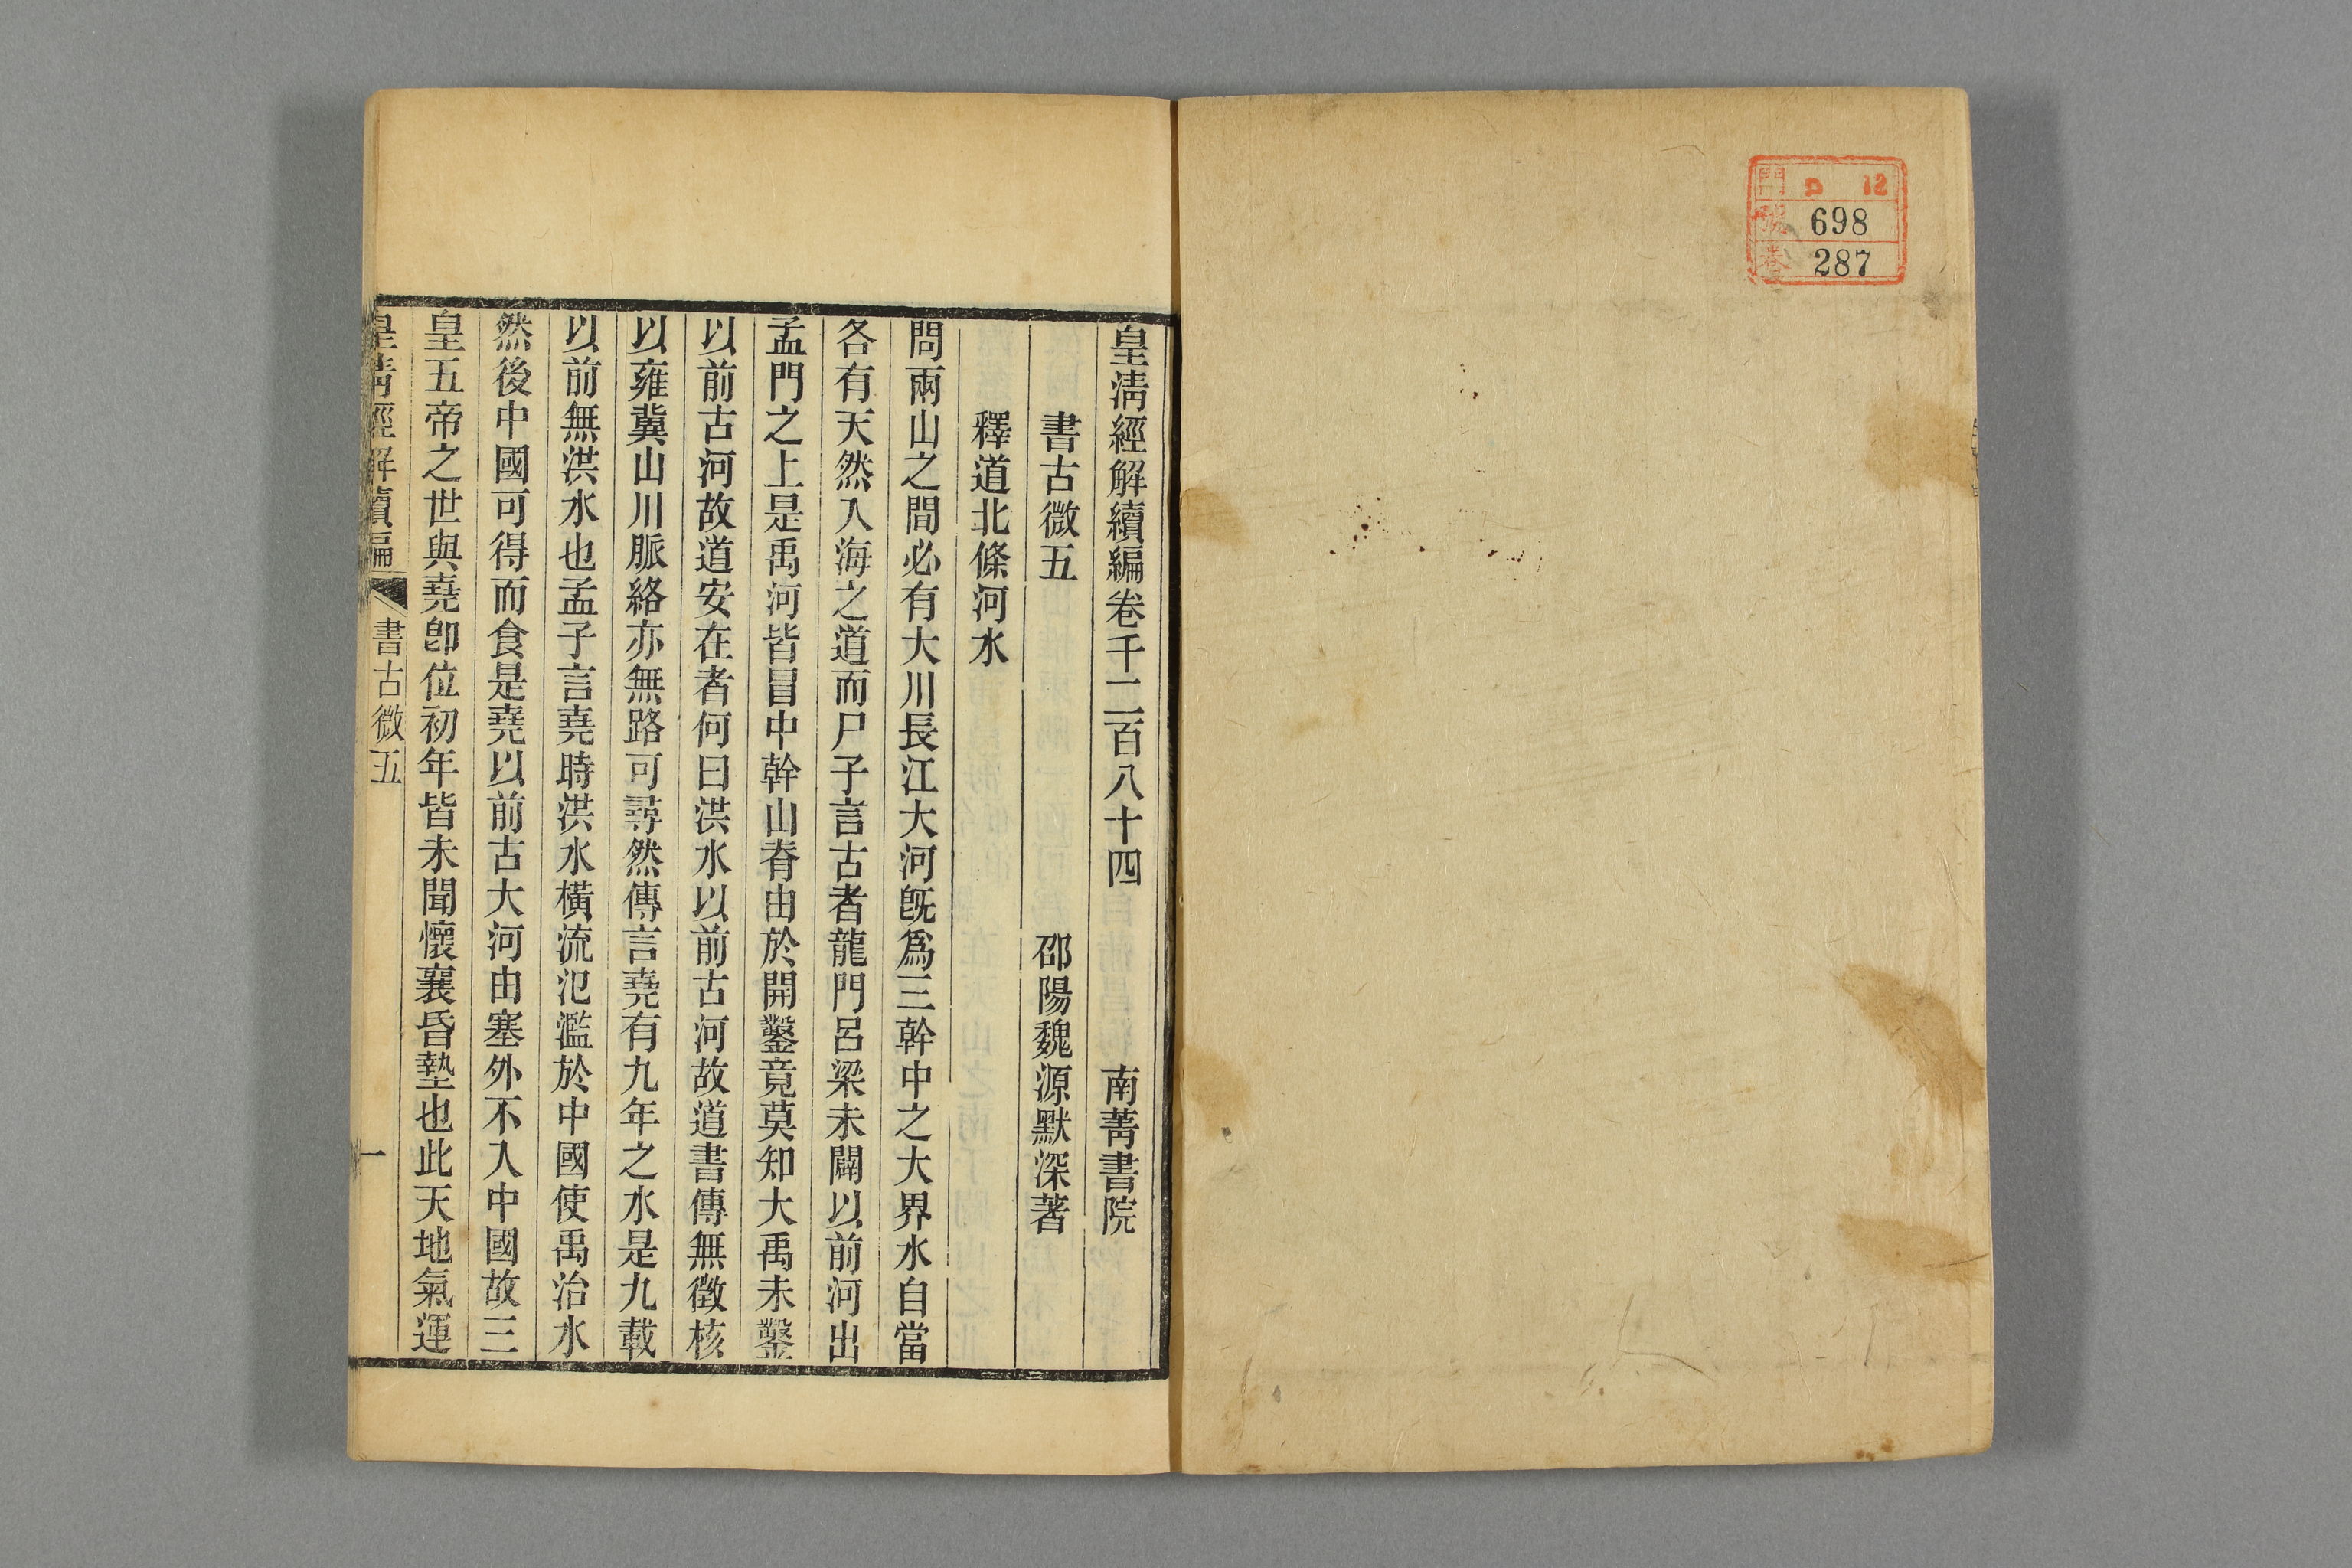 門 ロ 12
號 698
卷 287
皇淸經解續編卷千二百八十四 南菁書院
書古微五 邵陽魏源默深著
釋道北條河水
問兩山之間必有大川長江大河旣爲三幹中之大界水自當
各有天然入海之道而尸子言古者龍門呂梁未闢以前河出
孟門之上是禹河皆冒中幹山脊由於開鑿竟莫知大禹未鑿
以前古河故道安在者何曰洪水以前古河故道書傳無徵核
以雍冀山川脈絡亦無路可尋然傳言堯有九年之水是九載
以前無洪水也孟子言堯時洪水橫流氾濫於中國使禹治水
然後中國可得而食是堯以前古大河由塞外不入中國故三
皇五帝之世與堯卽位初年皆未聞懷襄昏墊也此天地氣運
皇淸經解續編 書古微五 一